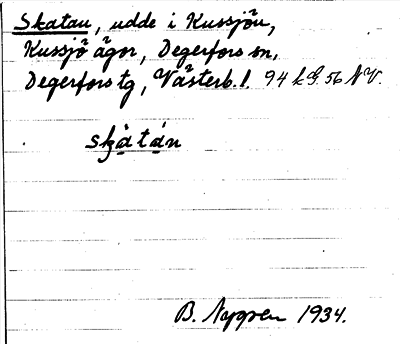 Skatan, udde i Kussjön,
Kussjö ägor, Degerfors sn,
Degerfors tg, Västerb. l. 94 k G. 56 NV.
skàtán
B. Nygren 1934.